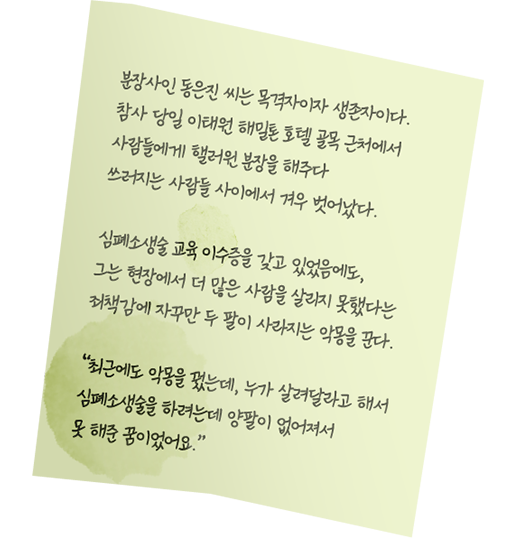 분장사인 동은진 씨는 목격자이자 생존자이다.
참사 당일 이태원 해밀톤 호텔 골목 근처에서
사람들에게 핼러윈 분장을 해주다
쓰러지는 사람들 사이에서 겨우 벗어났다.
심폐소생술 교육 이수증을 갖고 있었음에도,
그는 현장에서 더 많은 사람을 살리지 못했다는
죄책감에 자꾸만 두 팔이 사라지는 악몽을 꾼다.
“최근에도 악몽을 꿨는데, 누가 살려달라고 해서
심폐소생술을 하려는데 양팔이 없어져서
못 해준 꿈이었어요.”